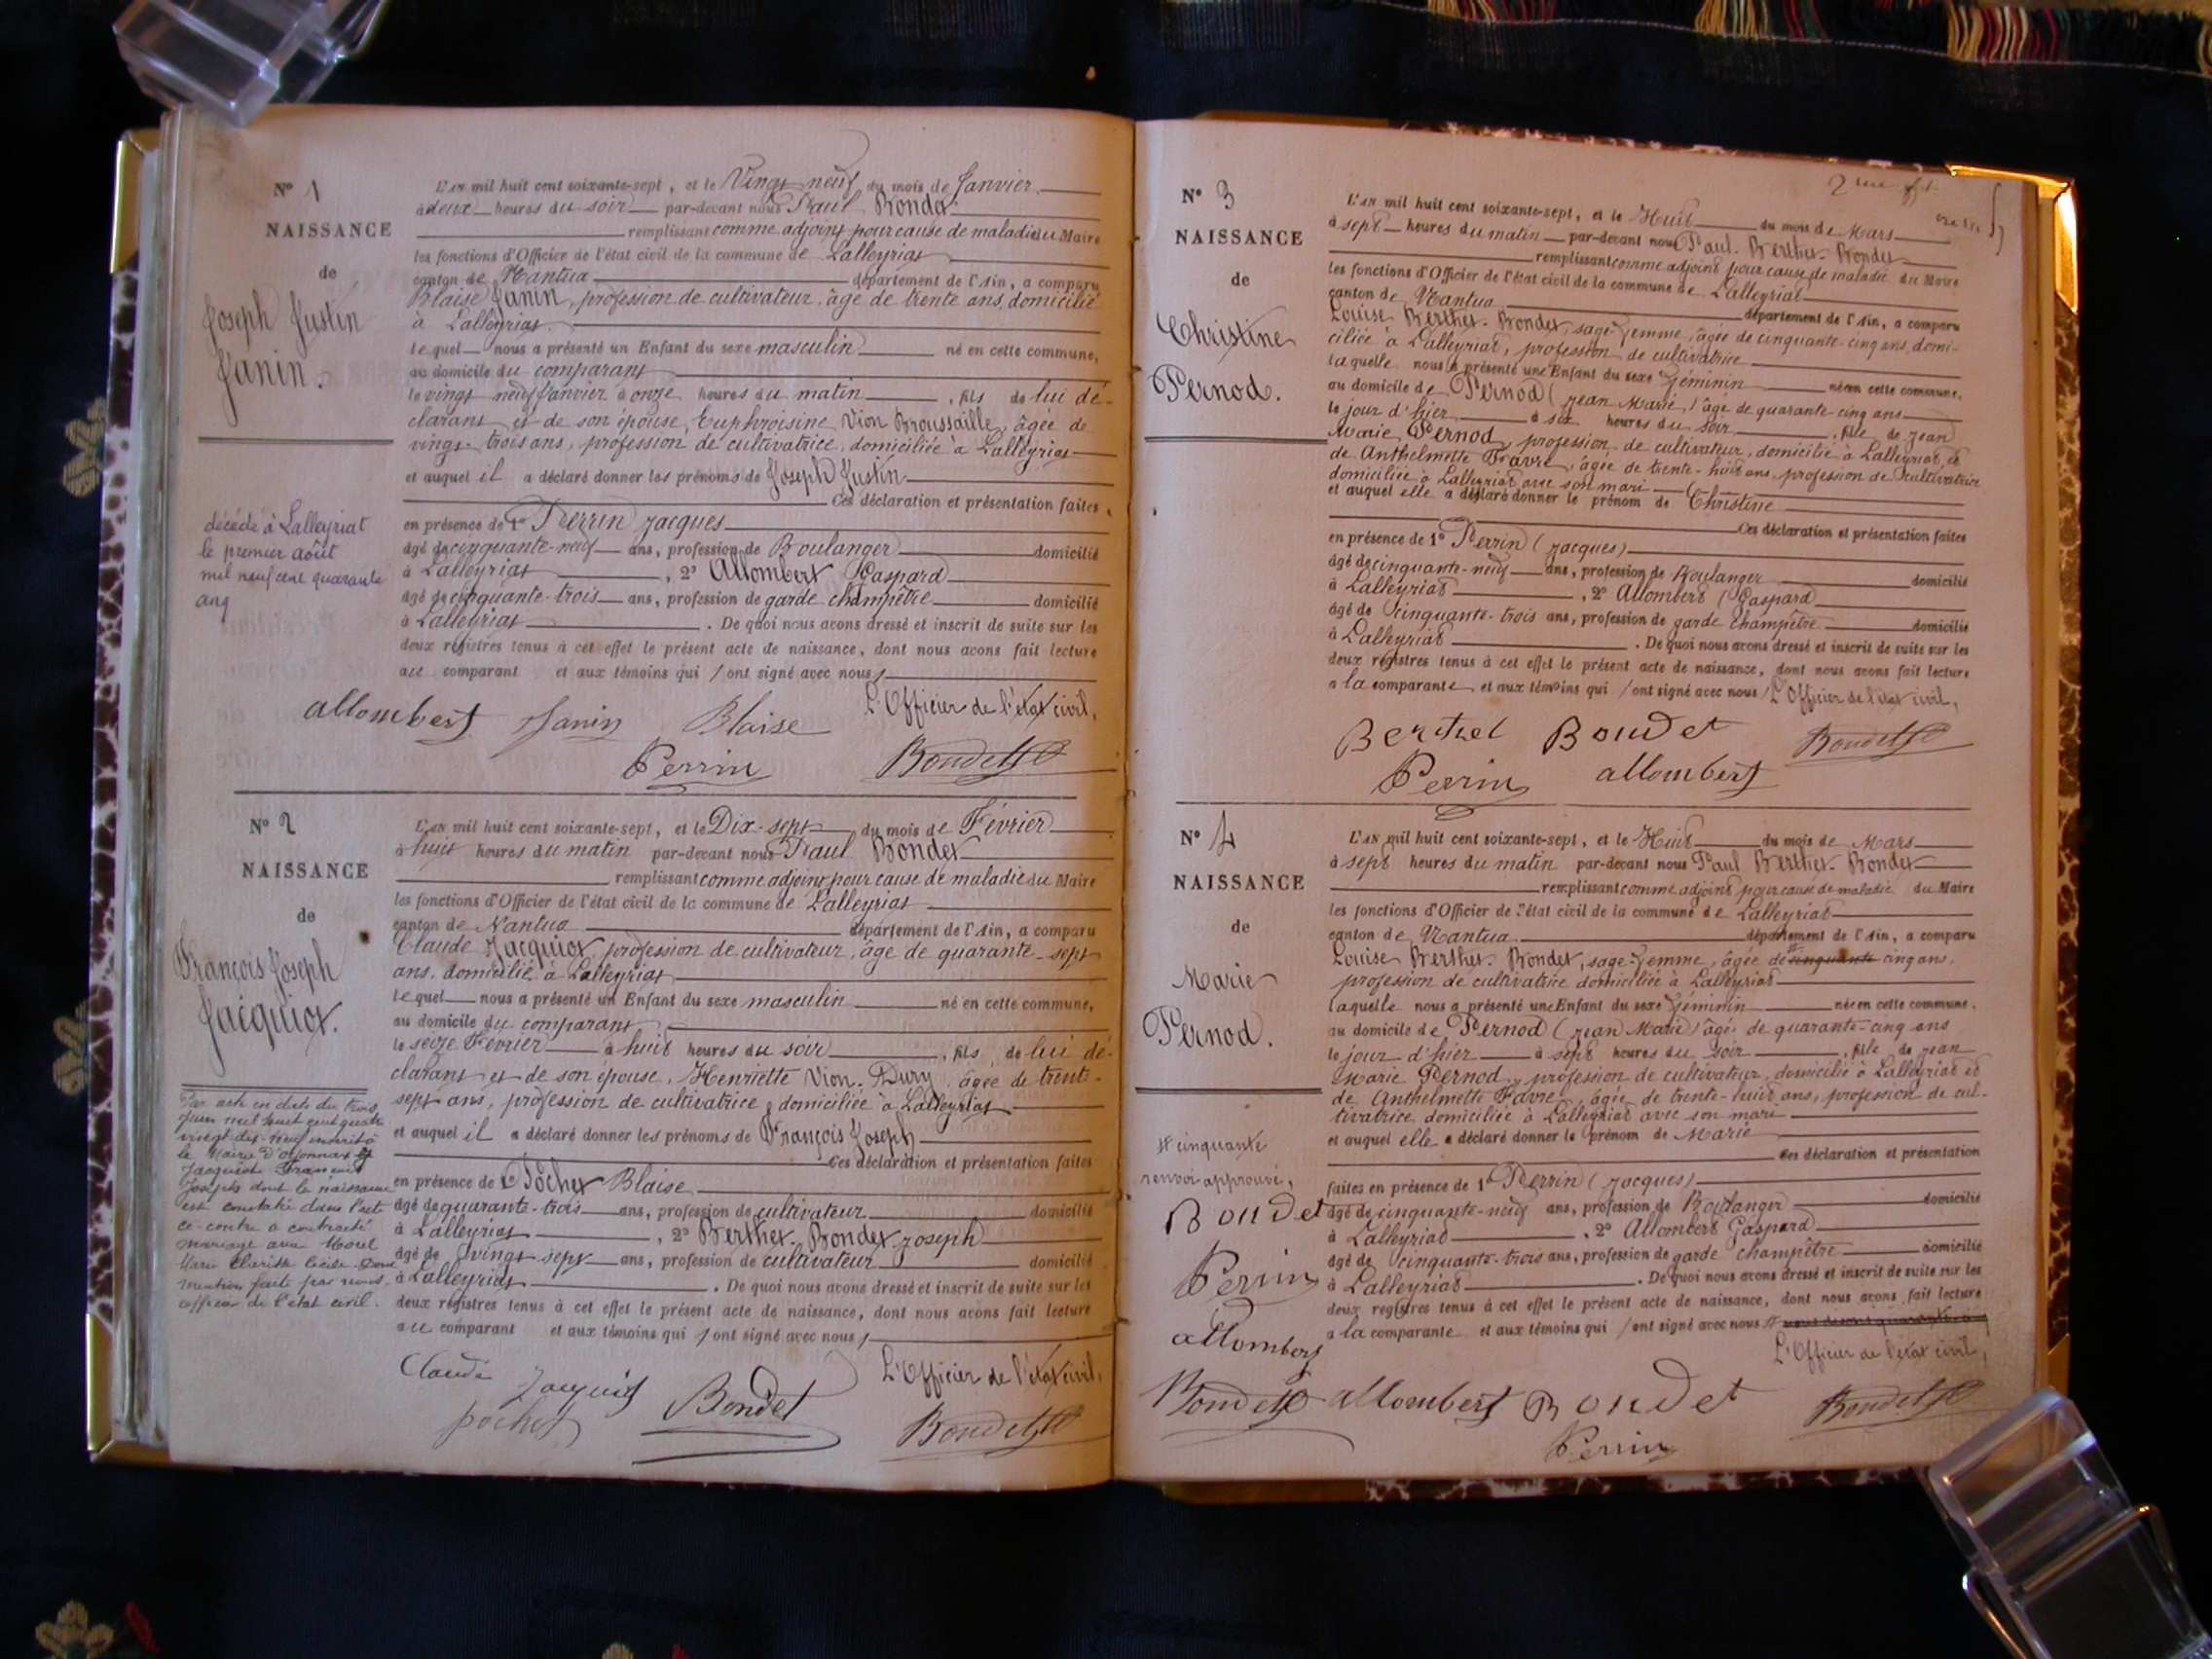 N° 1
NAISSANCE
de
Joseph Justin
Janin.
décédé à Lalleyriat
le premier août
mil neuf cent quarante
L'AN mil huit cent soixante-sept, et le Vingt-neuf du mois de Janvier
à deux heures du soir par-devant nous Paul Bondet
remplissant comme adjoint pour cause de maladie du Maire
les fonctions d'Officier de l'état civil de la commune de Lalleyriat
canton de Nantua département de l'Ain, a comparu
Blaise Janin, profession de cultivateur, âgé de trente ans, domicilié
à Lalleyriat.
lequel nous a présenté un Enfant du sexe masculin né en cette commune,
au domicile du comparant
le vingt neuf Janvier à onze heures du matin, fils de lui dé-
clarant et de son épouse, Euphroisine Vion Broussaille, âgée de
vingt-trois ans, profession de cultivatrice, domiciliée à Lalleyriat
et auquel il a déclaré donner les prénoms de Joseph Justin
Ces déclaration et présentation faites
en présence de 1° Perrin Jacques
âgé de cinquante-neuf ans, profession de Boulanger domicilié
à Lalleyriat, 2° Allombert Gaspard
âgé de cinquante-trois ans, profession de garde champêtre domicilié
à Lalleyriat. De quoi nous avons dressé et inscrit de suite sur les
deux registres tenus à cet effet le présent acte de naissance, dont nous avons fait lecture
au comparant et aux témoins qui ont signé avec nous
L'Officier de l'état civil,
allombert Janin Blaise
Perrin Bondet
N° 2
NAISSANCE
de
François Joseph
Jacquiot.
Par acte en date du trois
juin mil huit cent quatre
vingt-dix-neuf inscrit à
la Mairie d'Oyonnax
Jacquiot François
Joseph dont la naissance
est constatée dans l'acte
ci-contre a contracté
mariage avec Morel
Marie
mention faite par nous,
officier de l'état civil.
L'AN mil huit cent soixante-sept, et le Dix-sept du mois de Février
à huit heures du matin par-devant nous Paul Bondet
remplissant comme adjoint pour cause de maladie du Maire
les fonctions d'Officier de l'état civil de la commune de Lalleyriat
canton de Nantua département de l'Ain, a comparu
Claude Jacquiot, profession de cultivateur, âgé de quarante-sept
ans, domicilié à Lalleyriat
lequel nous a présenté un Enfant du sexe masculin né en cette commune,
au domicile du comparant
le seize Février à huit heures du soir, fils de lui dé-
clarant et de son épouse, Henriette Vion-Dury, âgée de trente-
sept ans, profession de cultivatrice domiciliée à Lalleyriat
et auquel il a déclaré donner les prénoms de François Joseph
Ces déclaration et présentation faites
en présence de Pochet Blaise
âgé de quarante-trois ans, profession de cultivateur domicilié
à Lalleyriat, 2° Berthet-Bondet Joseph
âgé de vingt-sept ans, profession de cultivateur domicilié
à Lalleyriat. De quoi nous avons dressé et inscrit de suite sur les
deux registres tenus à cet effet le présent acte de naissance, dont nous avons fait lecture
au comparant et aux témoins qui ont signé avec nous
L'Officier de l'état civil,
Claude Jacquiot Bondet
pochet Bondet
N° 3
NAISSANCE
de
Christine
Pernod.
L'AN mil huit cent soixante-sept, et le Huit du mois de Mars
à sept heures du matin par-devant nous Paul Berthet-Bondet
remplissant comme adjoint pour cause de maladie du Maire
les fonctions d'Officier de l'état civil de la commune de Lalleyriat
canton de Nantua département de l'Ain, a comparu
Louise Berthet-Bondet, sage-femme, âgée de cinquante-cinq ans, domi-
ciliée à Lalleyriat, profession de cultivatrice
laquelle nous a présenté une Enfant du sexe féminin née en cette commune,
au domicile de Pernod (Jean Marie) âgé de quarante-cinq ans
le jour d'hier à six heures du soir, fille de Jean
Marie Pernod, profession de cultivateur, domicilié à Lalleyriat et
de Anthelmette Favre, âgée de trente-huit ans, profession de cultivatrice
domiciliée à Lalleyriat avec son mari
et auquel elle a déclaré donner le prénom de Christine
Ces déclaration et présentation faites
en présence de 1° Perrin (Jacques)
âgé de cinquante-neuf ans, profession de Boulanger domicilié
à Lalleyriat, 2° Allombert (Gaspard)
âgé de cinquante-trois ans, profession de garde champêtre domicilié
à Lalleyriat. De quoi nous avons dressé et inscrit de suite sur les
deux registres tenus à cet effet le présent acte de naissance, dont nous avons fait lecture
a la comparante et aux témoins qui ont signé avec nous L'Officier de l'état civil,
Berthet Boudet Bondet
Perrin allombert
N° 4
NAISSANCE
de
Marie
Pernod.
# cinquante
renvoi approuvé,
Boudet
Perrin
allombert
Bondet
L'AN mil huit cent soixante-sept, et le Huit du mois de Mars
à sept heures du matin par-devant nous Paul Berthet-Bondet
remplissant comme adjoint pour cause de maladie du Maire
les fonctions d'Officier de l'état civil de la commune de Lalleyriat
canton de Nantua département de l'Ain, a comparu
Louise Berthet-Bondet, sage-femme, âgée de # cinquante cinq ans,
profession de cultivatrice domiciliée à Lalleyriat
laquelle nous a présenté une Enfant du sexe féminin née en cette commune,
au domicile de Pernod (Jean Marie) âgé de quarante-cinq ans
le jour d'hier à sept heures du soir, fille de Jean
Marie Pernod, profession de cultivateur, domicilié à Lalleyriat et
de Anthelmette Favre, âgée de trente-huit ans, profession de cul-
tivatrice domiciliée à Lalleyriat avec son mari
et auquel elle a déclaré donner le prénom de Marie
Ces déclaration et présentation
faites en présence de 1° Perrin (Jacques)
âgé de cinquante-neuf ans, profession de Boulanger domicilié
à Lalleyriat, 2° Allombert Gaspard
âgé de cinquante-trois ans, profession de garde champêtre domicilié
à Lalleyriat. De quoi nous avons dressé et inscrit de suite sur les
deux registres tenus à cet effet le présent acte de naissance, dont nous avons fait lecture
a la comparante et aux témoins qui ont signé avec nous
L'Officier de l'état civil,
allombert Boudet Bondet
Perrin